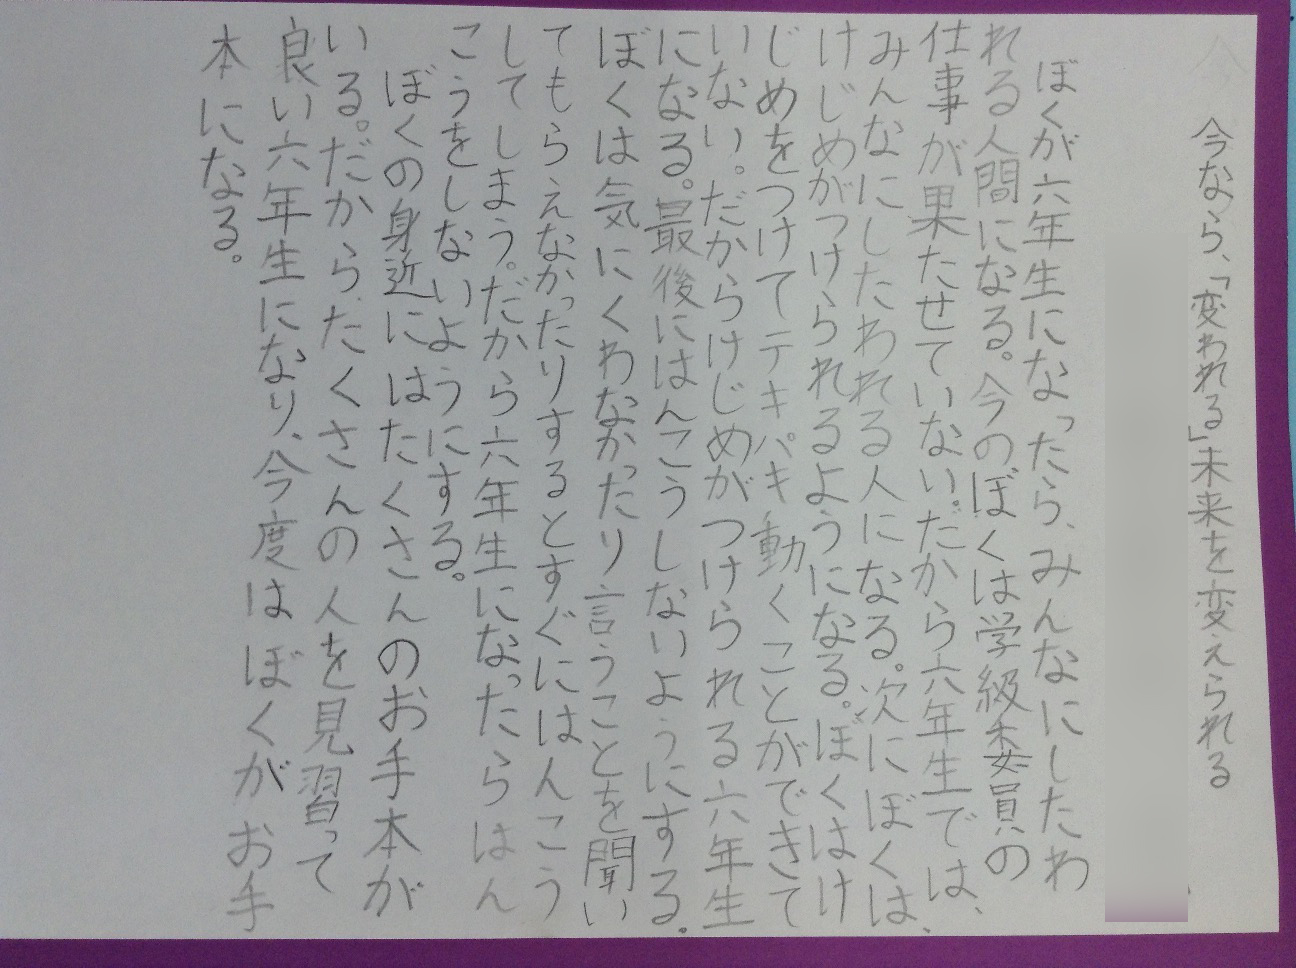 今なら、「変われる」未来を変えられる
ぼくが六年生になったら、みんなにしたわ
れる人間になる。今のぼくは学級委員の
仕事が果たせていない。だから六年生では、
みんなにしたわれる人になる。次にぼくは、
けじめがつけられるようになる。ぼくはけ
じめをつけてテキパキ動くことができて
いない。だからけじめがつけられる六年生
になる。最後にはんこうしないようにする。
ぼくは気にくわなかったり言うことを聞い
てもらえなかったりするとすぐにはんこう
してしまう。だから六年生になったらはん
こうをしないようにする。
ぼくの身近にはたくさんのお手本が
いる。だから、たくさんの人を見習って
良い六年生になり、今度はぼくがお手
本になる。